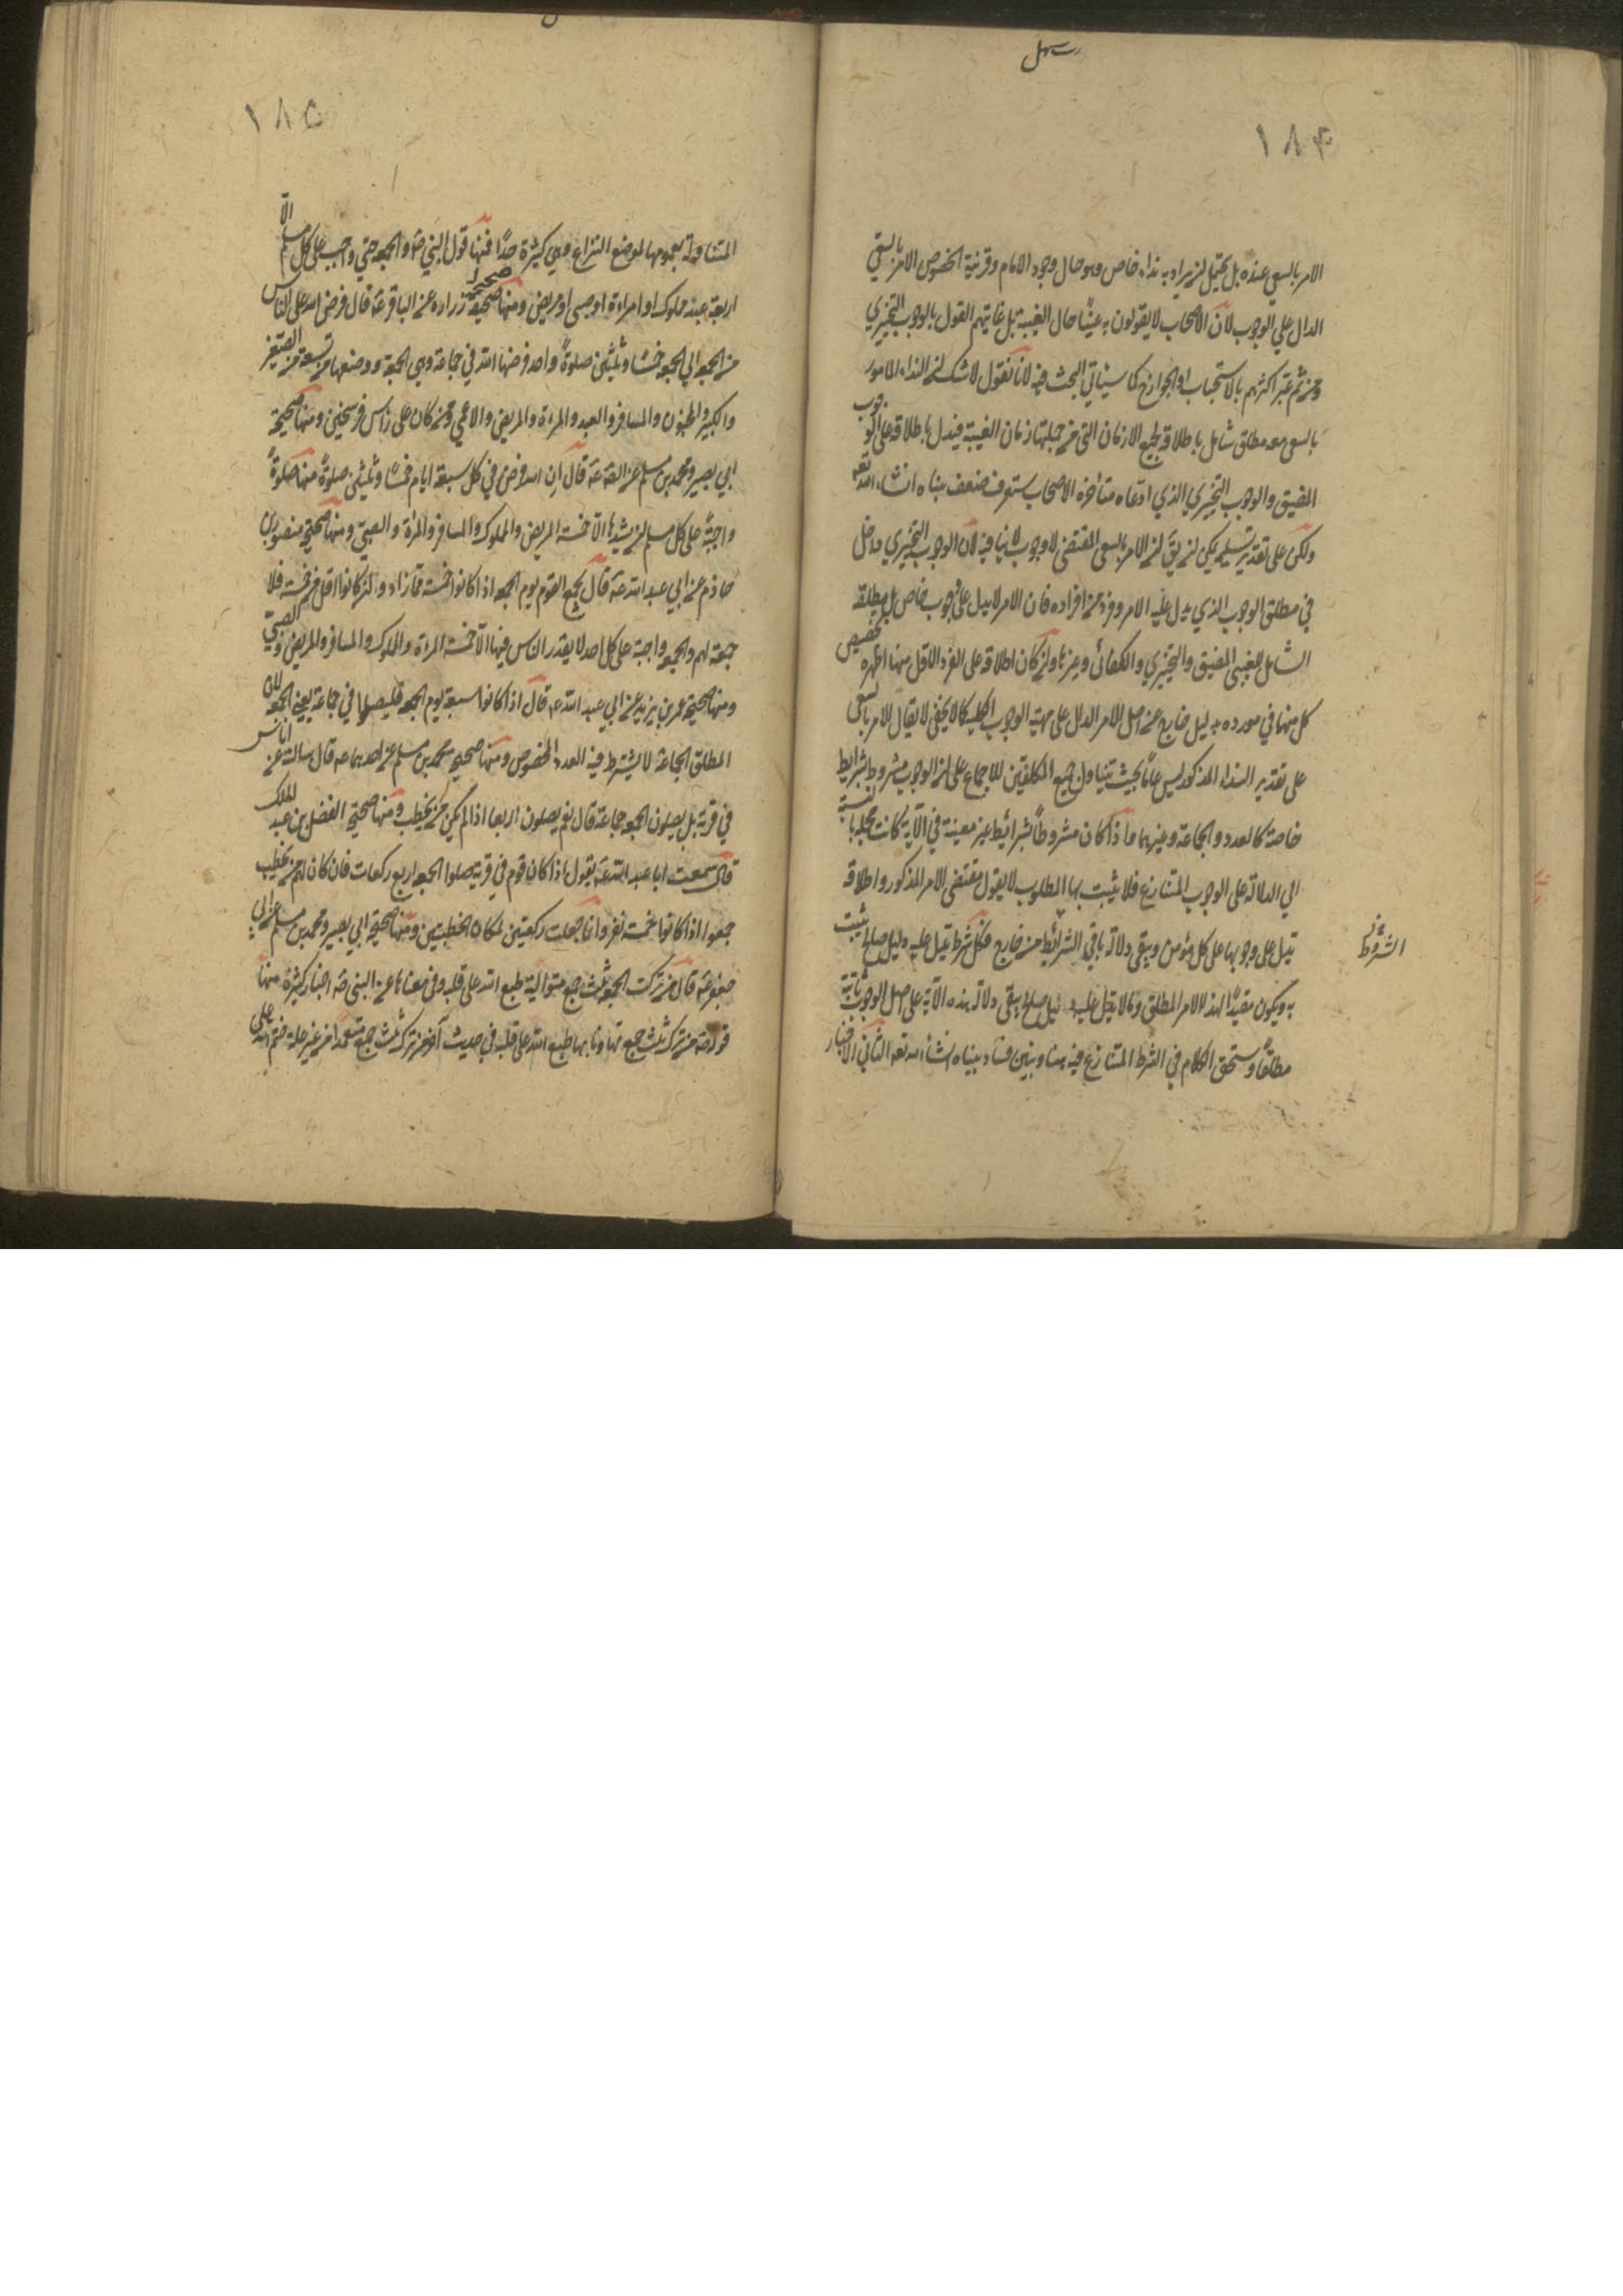 ١٨٤
الامر بالسعي عنده بل يحتمل ان يراد به نداء خاص وهو حال وجود الامام وقرنية الخصوص الامر بالسعي
الدال علي الوجوب لان الاصحاب لا يقولون به عينًا حال الغيبة بل غايتهم القول بالوجوب التخييري
ومن ثم عبّر اكثرهم بالاستحباب او الجواز كما سيأتي البحث فيه لانا نقول لا شك ان النداء المامور
بالسعي معه مطلق شامل باطلاقه لجميع الازمان التي من جملتها زمان الغيبة فيدل باطلاقه علي الوجوب
المضيق والوجوب التخييري الذي ادعاه متأخروا الاصحاب ستعرف ضعف مبناه انشاء الله تعه
ولكن علي تقدير تسليمه يمكن ان يقّ ان الامر بالسعي المقتضي للوجوب لا ينافيه لان الوجوب التخييري داخل
في مطلق الوجوب الذي يدل عليه الامر وفرد من افراده فان الامر لا يدل علي وجوب خاص بل مطلقه
الشامل للعيني المضيق والتخييري والكفائي وغيرها وان كان اطلاقه علي الفرد الاول منها اظهر وتخصيص
كل منها في مورده بدليل خارج عن اصل الامر الدال علي مهية الوجوب الكلية كما لا يخفي لا يقال الامر بالسعي
علي تقدير النداء المذكور ليس عامًا بحيث يتناول جميع المكلفين للاجماع علي ان الوجوب مشروط بشرايط
خاصة كالعدد والجماعة وغيرهما واذا كان مشروطًا بشرائط غير معينة في الآية كانت مجملة بالنسبة
الي الدلالة علي الوجوب المتنازع فلا يثبت بها المطلوب لانا نقول مقتضي الامر المذكور واطلاقه
يدل علي وجوبها علي كل مؤمن ويبقي دلالة باقي الشرائط من خارج فكل شرط يدل عليه دليل صالح يثبت
الشروط
به ويكون مقيدًا لهذا الامر المطلق وما لا يدل عليه دليل صالح يبقي دلالة هذه الآية علي اصل الوجوب ثابتة
مطلقًا وستحقق الكلام في الشرط المتنازع فيه هنا ونبين فساد مبناه انشاء الله تعه الثاني الاخبار
١٨٥
المتناولة بعمومها لموضع النزاع وهي كثيرة جدًا فمنها قول النبي صه والجمعة حق واجب علي كل مسلم الاّ
اربعة عبد مملوك او امراءة او صبي او مريض ومنها صحيحة زرارة عن الباقر عه قال فرض الله علي الناس
من الجمعة الي الجمعة خمسًا وثلثين صلوةً واحدة فرضها الله في جماعة وهي الجمعة ووضعها عن تسعة عن الصغير
والكبير والمجنون والمسافر والعبد والمراة والمريض والاعمي ومن كان علي راس فرسخين ومنها صحيحة
ابي بصير ومحمد بن مسلم عن الصه عه قال ان الله فرض في كل سبعة ايام خمسًا وثلثين صلوةً منها صلوةً
واجبةً علي كل مسلم ان يشهدها الاّ خمسة المريض والمملوك والمسافر والمراة والصبي ومنها صحيحة منصور بن
حازم عن ابي عبد الله عه قال يجمع القوم يوم الجمعة اذا كانوا خمسة فما زاد وان كانوا اقل من خمسة فلا
جمعة لهم والجمعة واجبة علي كل احد لا يعذر الناس فيها الاّ خمسة المراة والمملوك والمسافر والمريض والصبي
ومنها صحيحة عمر بن يزيد عن ابي عبد الله عه قال اذا كانوا سبعة يوم الجمعة فليصلوا في جماعة يعني الجمعة لان
المطلق الجماعة لا يشترط فيه العدد المخصوص ومنها صحيحة محمد بن مسلم عن احدهما عه قال سالته عن اناس
في قرية بل يصلون الجمعة جماعة قال نعم يصلون اربعا اذا لم يكن من يخطب ومنها صحيحة الفضل بن عبد الملك
قال سمعت ابا عبد الله عه يقول اذا كان قوم في قرية صلوا الجمعة اربع ركعات فان كان لهم من يخطب
جمعوا اذا كانوا خمسة نفر وانما جعلت ركعتين لمكان الخطبتين ومنها صحيحة ابي بصير ومحمد بن مسلم عن ابي
جعفر عه قال من ترك الجمعة ثلث جمع متوالية طبع الله علي قلبه وفي معناها عن النبي صه اخبار كثيرة منها
قوله صه من ترك ثلث جمع تهاونا بها طبع الله علي قلبه وفي حديث آخر من ترك ثلث جمع متعمدًا من غير علة ختم الله علي